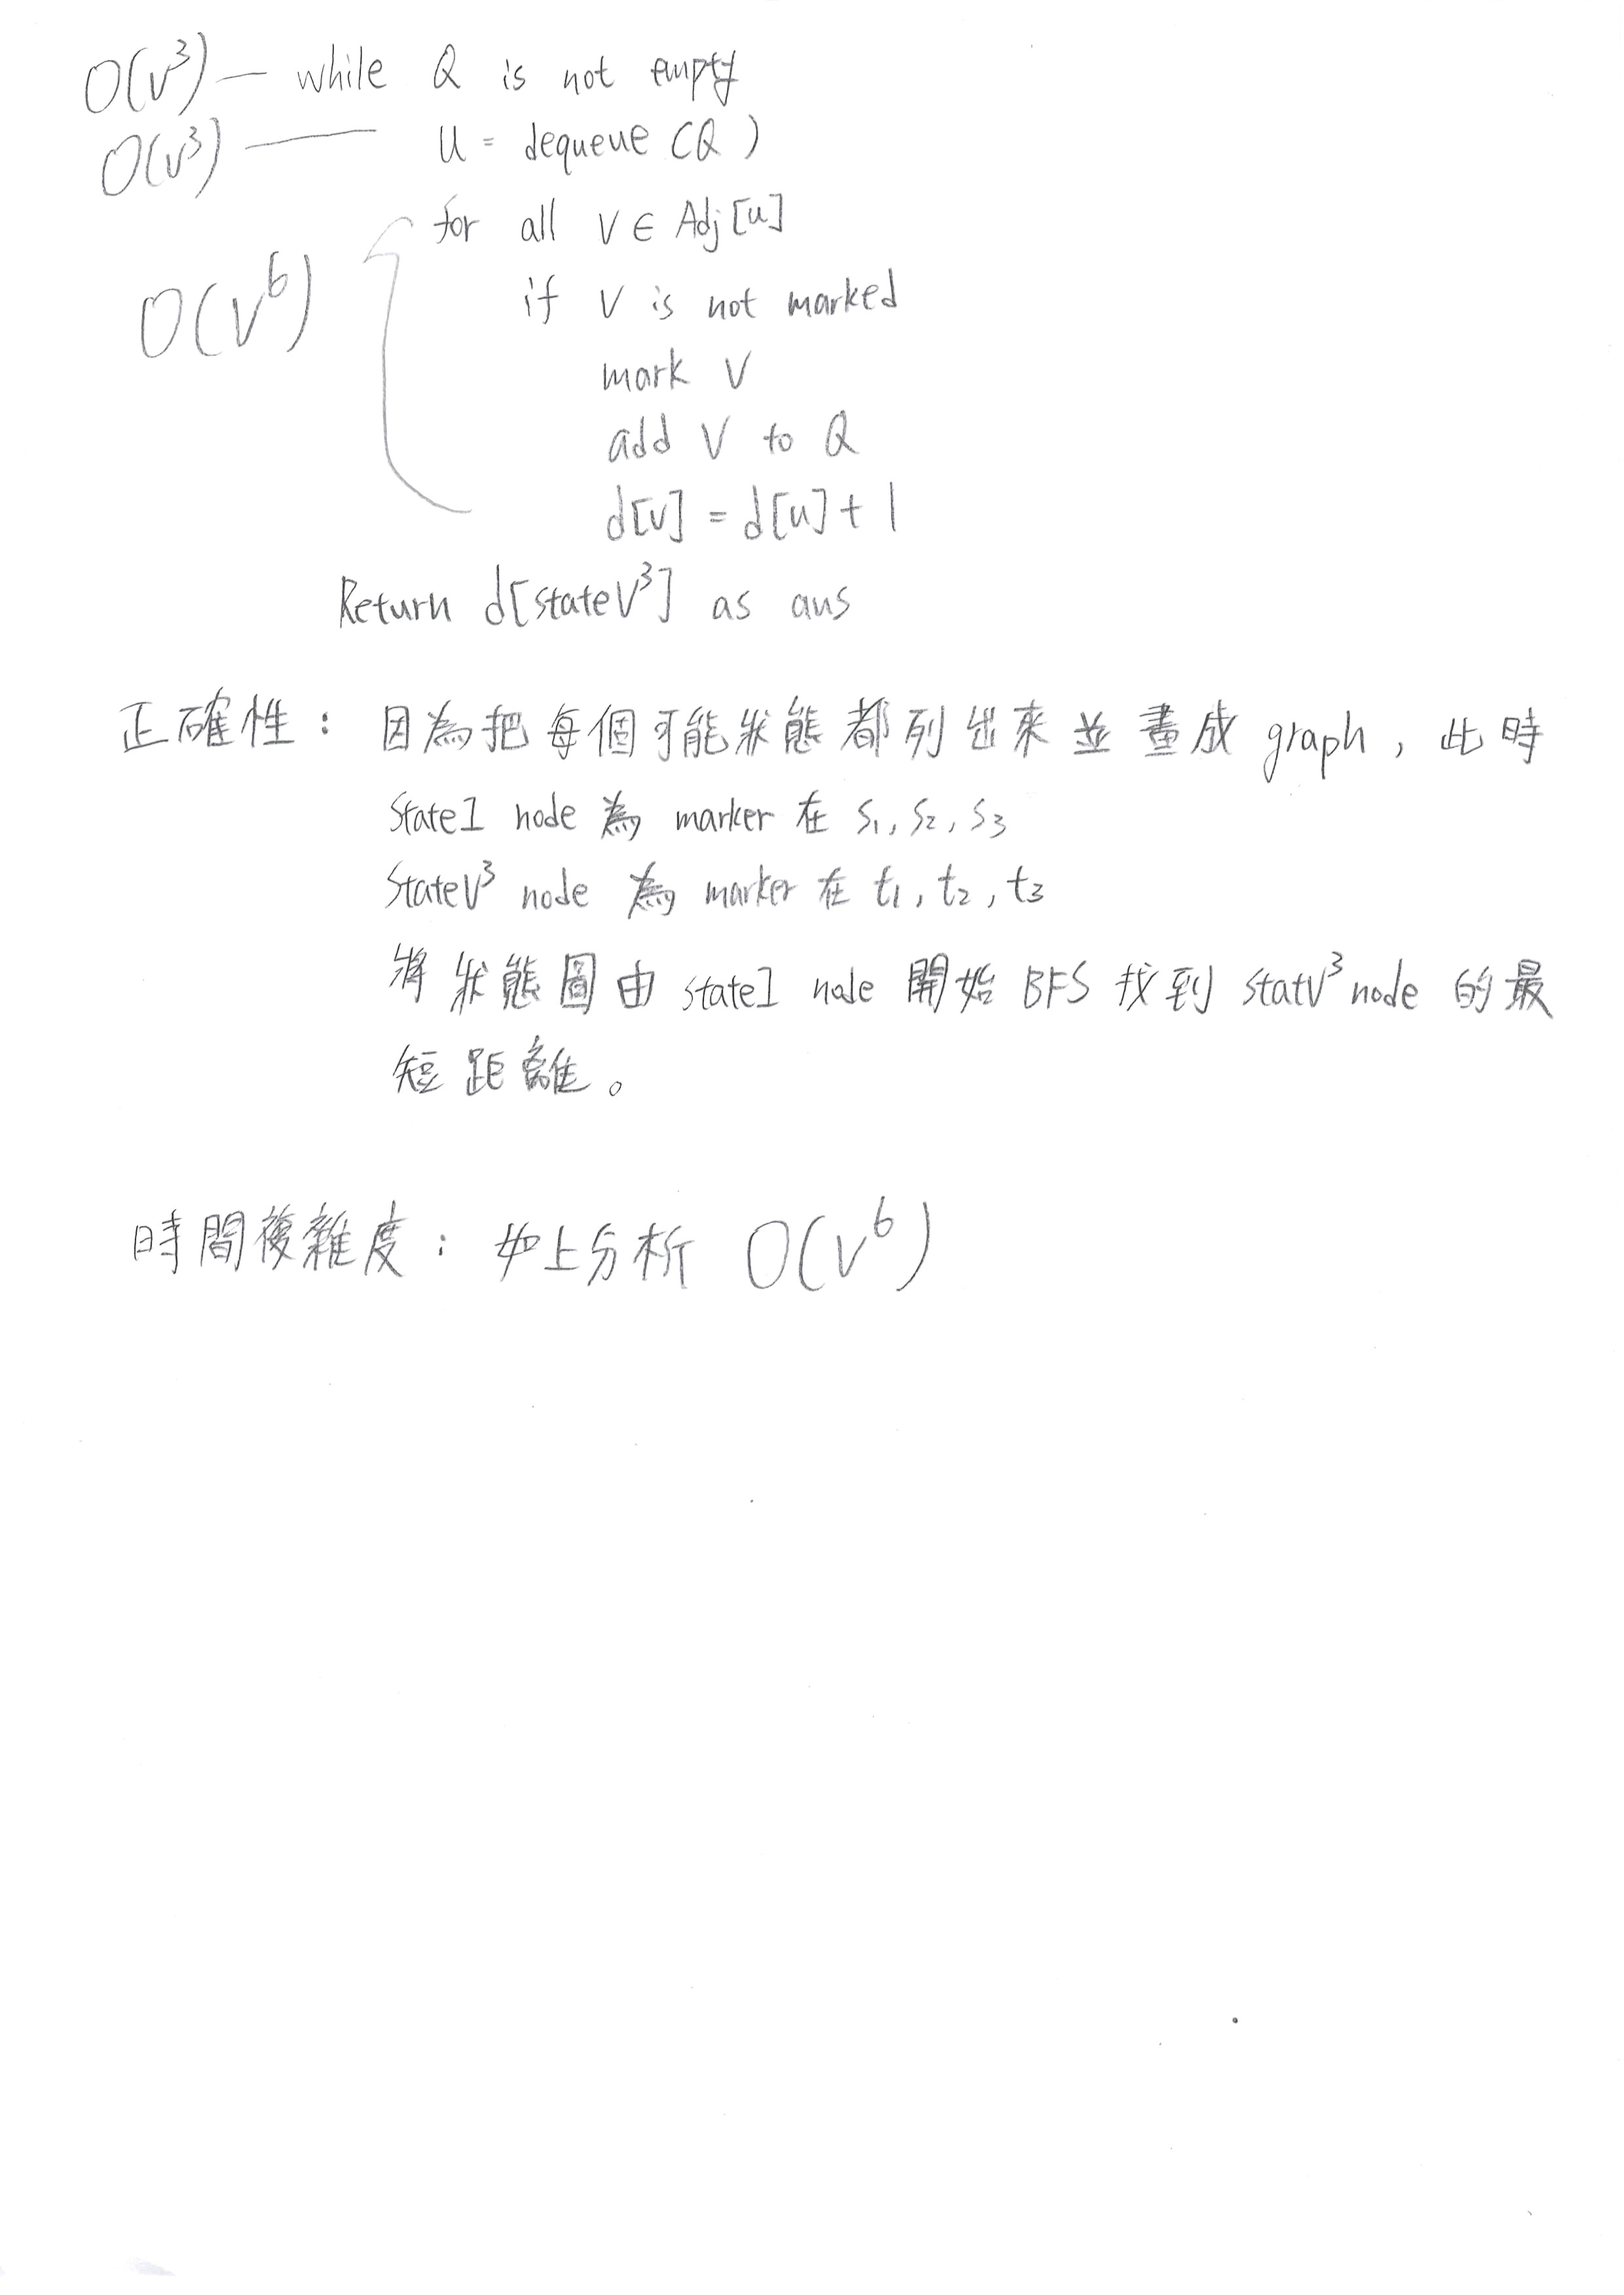 O(V³) — while Q is not empty
O(V³) — u = dequeue (Q)
for all v ∈ Adj[u]
O(V⁶) if v is not marked
mark v
add v to Q
d[v] = d[u] + 1
Return d[stateV³] as ans
正確性： 因為把每個可能狀態都列出來並畫成 graph，此時
state1 node 為 marker 在 s₁, s₂, s₃
stateV³ node 為 marker 在 t₁, t₂, t₃
將狀態圖由 state1 node 開始 BFS 找到 statV³ node 的最
短距離。
時間複雜度： 如上分析 O(V⁶)